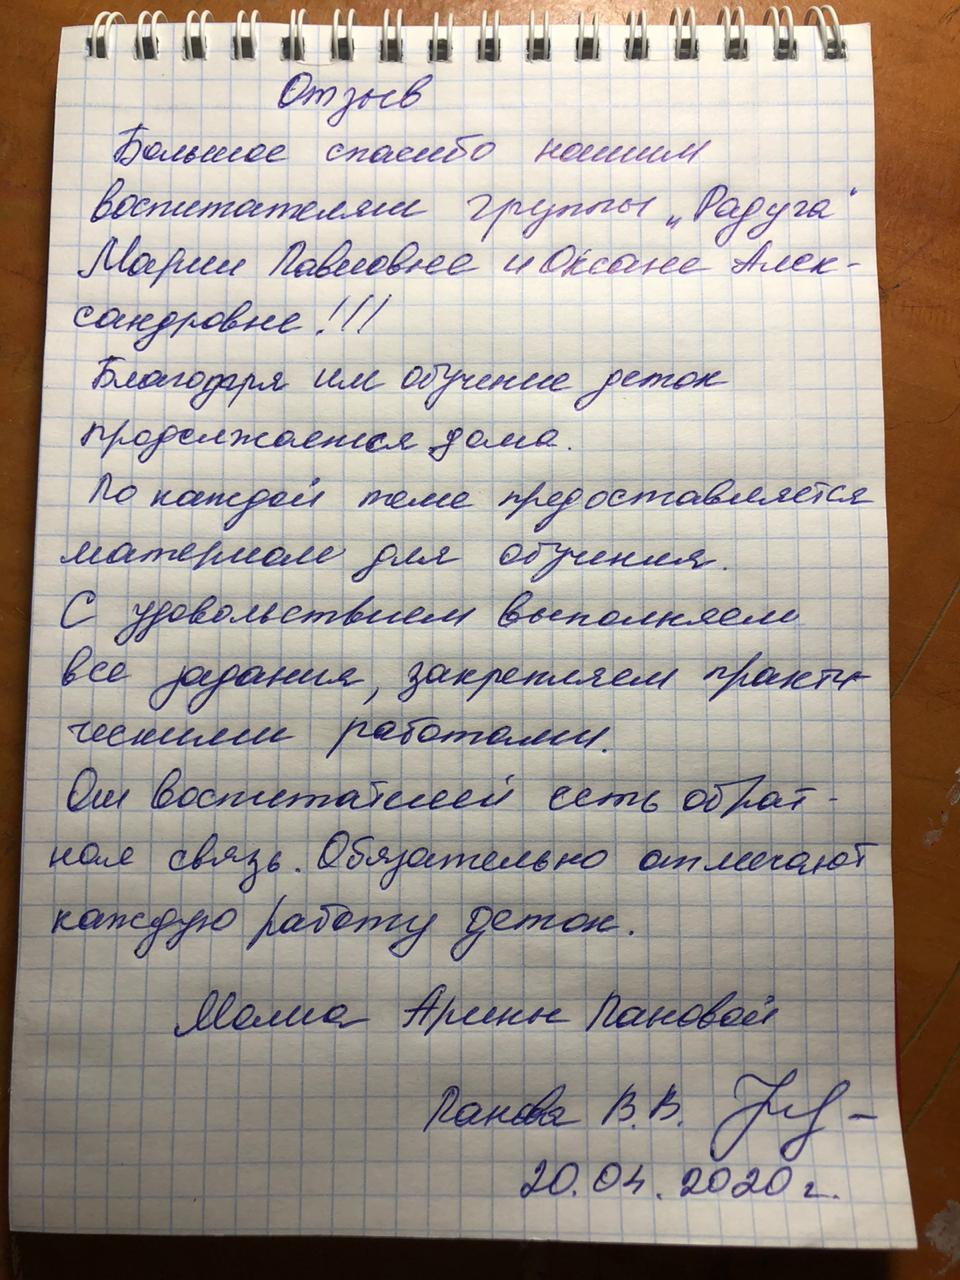 Отзыв
Большое спасибо нашим
воспитателям группы „Радуга“
Марии Павловне и Оксане Алек-
сандровне!!!
Благодаря им обучение деток
продолжается дома.
По каждой теме предоставляется
материал для обучения.
С удовольствием выполняем
все задания, закрепляем практи-
ческими работами.
От воспитателей есть обрат-
ная связь. Обязательно отмечают
каждую работу деток.
Мама Арины Пановой
Панова В.В.
20.04.2020г.